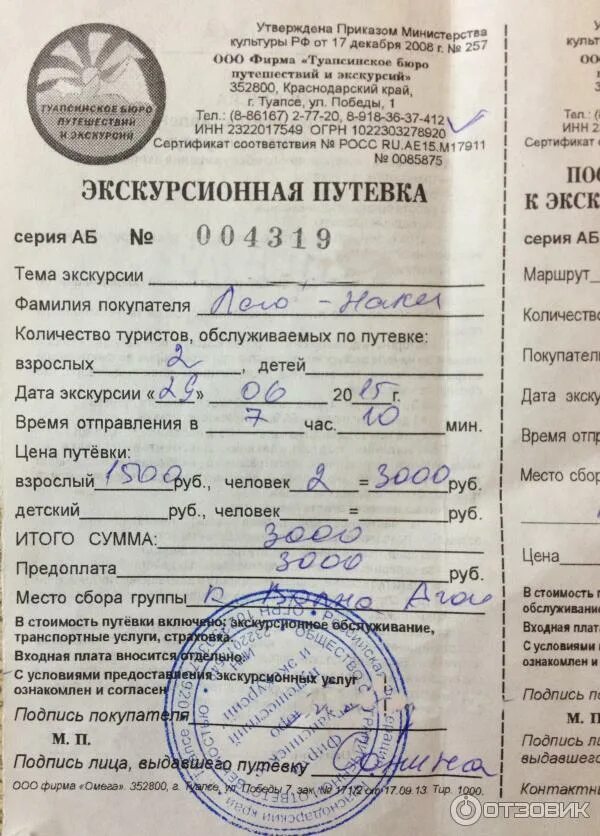 Утверждена Приказом Министерства
культуры РФ от 17 декабря 2008 г. № 257
ООО Фирма «Туапсинское бюро
путешествий и экскурсий»
352800, Краснодарский край,
г. Туапсе, ул. Победы, 1
Тел.: (8-86167) 2-77-20, 8-918-36-37-412
ИНН 2322017549 ОГРН 1022303278920
Сертификат соответствия № РОСС RU.АЕ15.М17911
№ 0085875
ТУАПСИНСКОЕ БЮРО
ПУТЕШЕСТВИЙ
И ЭКСКУРСИЙ
ЭКСКУРСИОННАЯ ПУТЕВКА
серия АБ № 004319
Тема экскурсии
Фамилия покупателя Лаго - Наки
Количество туристов, обслуживаемых по путевке:
взрослых 2, детей
Дата экскурсии «29» 06 2015 г.
Время отправления в 7 час. 10 мин.
Цена путёвки:
взрослый 1500 руб., человек 2 = 3000 руб.
детский руб., человек = руб.
ИТОГО СУММА: 3000
Предоплата 3000 руб.
Место сбора группы К Волна Агои
В стоимость путёвки включено: экскурсионное обслуживание,
транспортные услуги, страховка.
Входная плата вносится отдельно.
С условиями предоставления экскурсионных услуг
ознакомлен и согласен
Подпись покупателя
М. П.
Подпись лица, выдавшего путевку
ООО фирма «Омега». 352800, г. Туапсе, ул. Победы 7, зак. № 171/2 от 17.09.13. Тир. 1000.
ПОС
К ЭКСК
серия АБ
Маршрут
Количество
Покупатель
Дата экску
Время отпр
Место сбор
Цена
В стоимость п
обслуживание
Входная плата
С условиями п
ознакомлен и
Подпись по
М. П
Подпись ли
выдавшего
Контактны
ОТЗОВИК